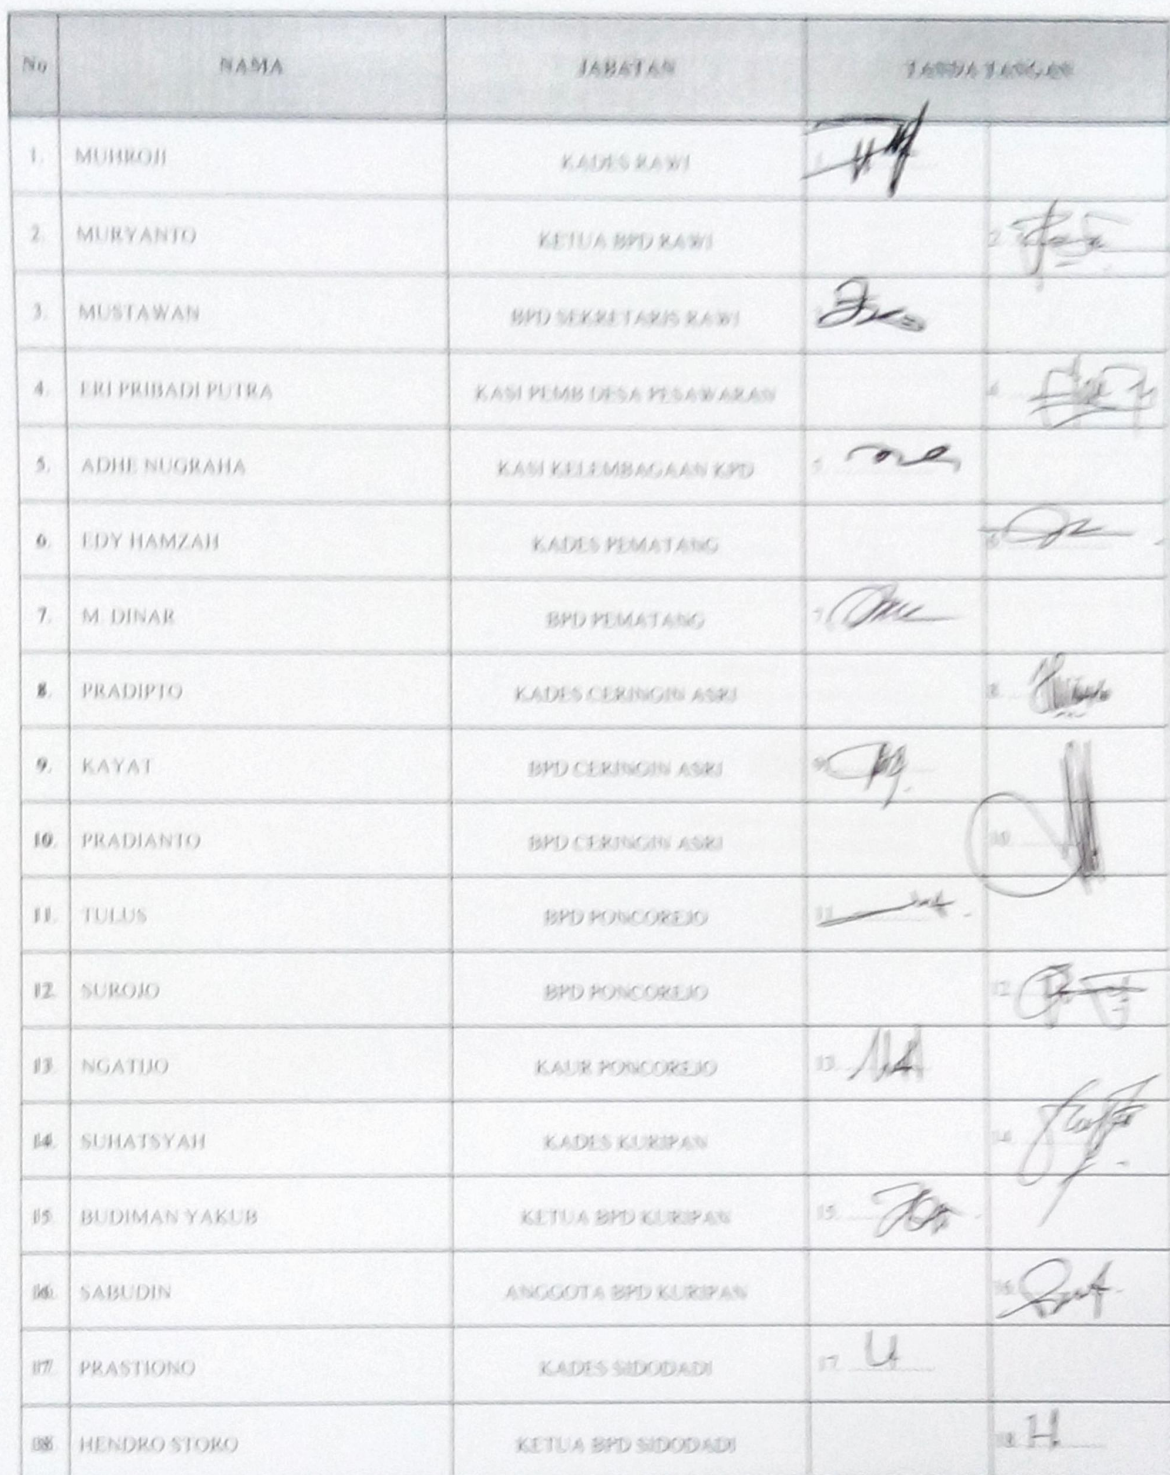 No NAMA JABATAN TANDA TANGAN
1. MUHROJI KADES RAWI 1.
2. MURYANTO KETUA BPD RAWI 2.
3. MUSTAWAN BPD SEKRETARIS RAWI
4. ERI PRIBADI PUTRA KASI PEMB DESA PESAWARAN 4.
5. ADHE NUGRAHA KASI KELEMBAGAAN KPD 5.
6. EDY HAMZAH KADES PEMATANG 6.
7. M. DINAR BPD PEMATANG 7.
8. PRADIPTO KADES CERINGIN ASRI 8.
9. KAYAT BPD CERINGIN ASRI 9.
10. PRADIANTO BPD CERINGIN ASRI 10.
11. TULUS BPD PONCOREJO 11.
12. SUROJO BPD PONCOREJO 12.
13. NGATIJO KAUR PONCOREJO 13.
14. SUHATSYAH KADES KURIPAN 14.
15. BUDIMAN YAKUB KETUA BPD KURIPAN 15.
16. SABUDIN ANGGOTA BPD KURIPAN 16.
17. PRASTIONO KADES SIDODADI 17.
18. HENDRO STORO KETUA BPD SIDODADI 18.